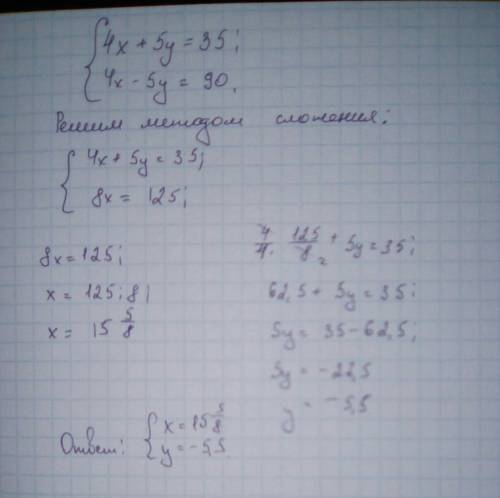 { 4x + 5y = 35;
4x - 5y = 90.
Решим методом сложения:
{ 4x + 5y = 35;
8x = 125;
8x = 125;
x = 125 : 8;
x = 15 5/8
4 · 125/8 2 + 5y = 35;
62,5 + 5y = 35;
5y = 35 - 62,5;
5y = -22,5
y = -5,5
Ответ: { x = 15 5/8
y = -5,5.